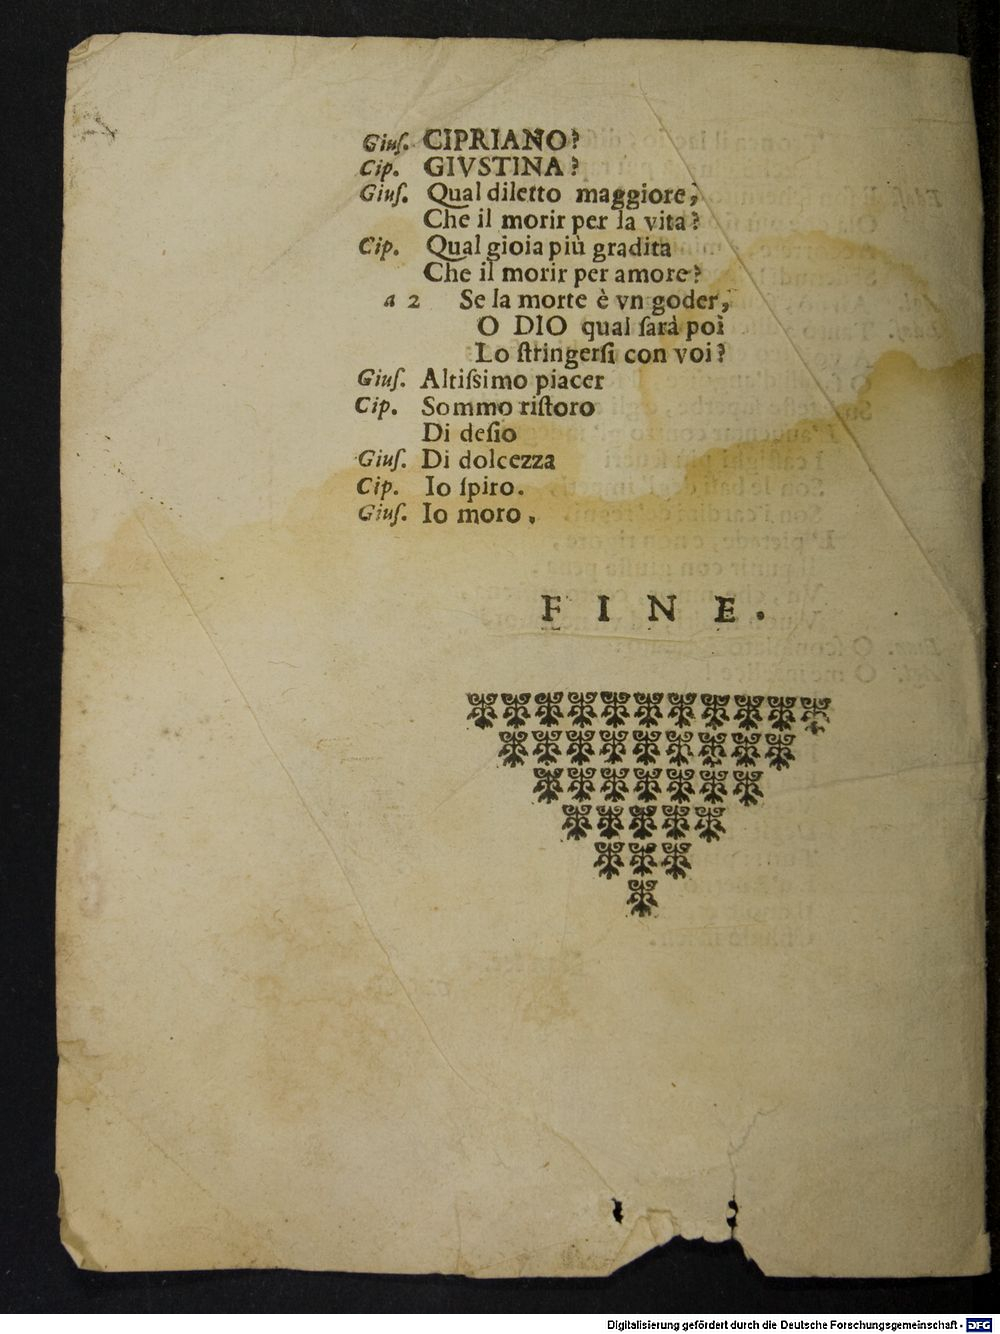 Giuſ. CIPRIANO?
Cip. GIVSTINA?
Giuſ. Qual diletto maggiore,
Che il morir per la vita?
Cip. Qual gioia più gradita
Che il morir per amore?
a 2 Se la morte è vn goder,
O DIO qual ſarà poi
Lo ſtringerſi con voi?
Giuſ. Altiſsimo piacer
Cip. Sommo riſtoro
Di deſio
Giuſ. Di dolcezza
Cip. Io ſpiro.
Giuſ. Io moro.
FINE.
Digitalisierung gefördert durch die Deutsche Forschungsgemeinschaft - DFG